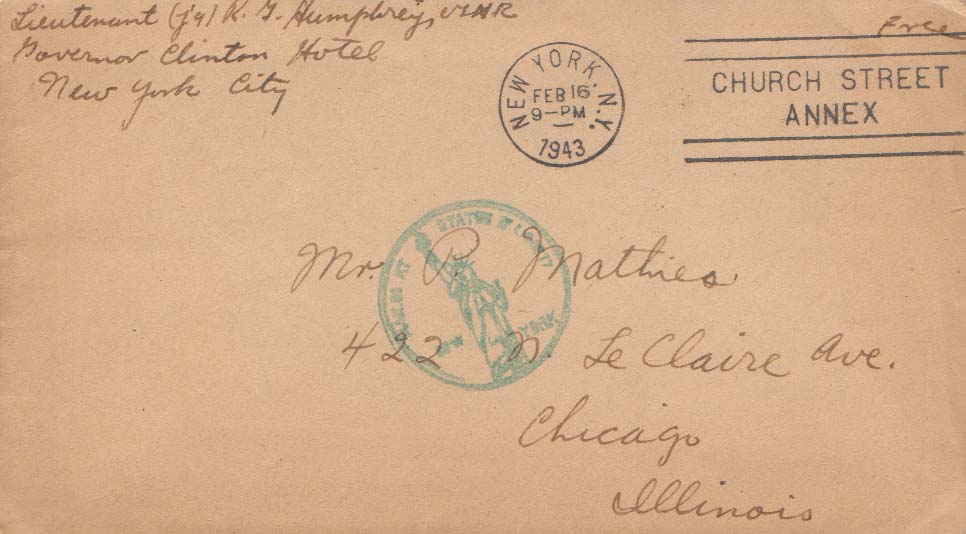 Lieutenant (jg) R. G. Humphrey, USNR
Governor Clinton Hotel
New York City
Free
NEW YORK, N.Y.
FEB 16
9-PM
1943
CHURCH STREET
ANNEX
MAILED AT STATUE OF LIBERTY
NEW YORK
Mr. P. Mathies
422 N. Le Claire Ave.
Chicago
Illinois